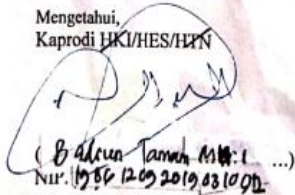 Mengetahui,
Kaprodi HKI/HES/HTN
( Badrun Taman M
NIP. 198612092019031002